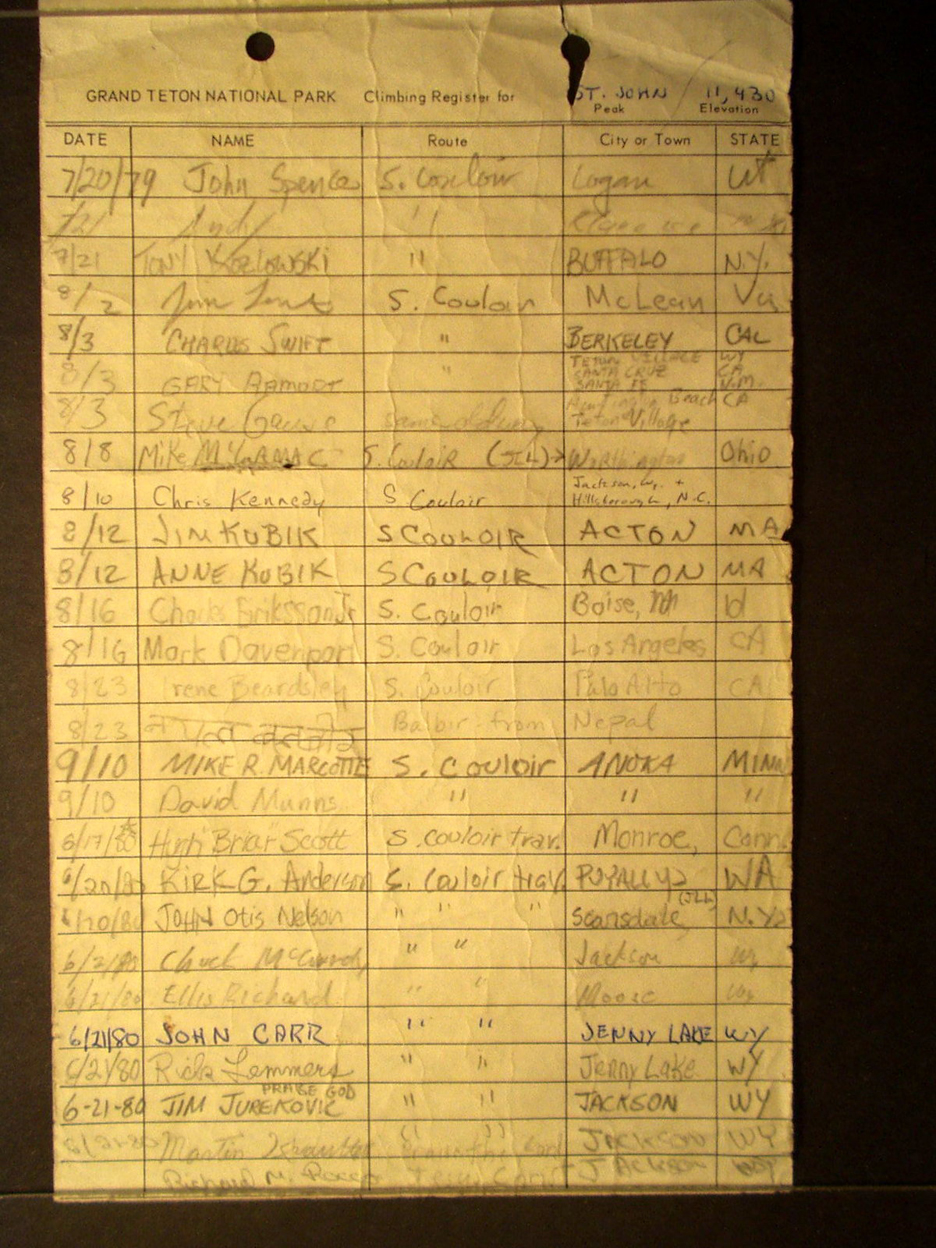 GRAND TETON NATIONAL PARK Climbing Register for ST. JOHN / 11,430
Peak Elevation
DATE NAME Route City or Town STATE
7/20/79 John Spence S. Couloir Logan Ut
7/21 Andy "
7/21 TONY KOZLOWSKI " BUFFALO N.Y.
8/2 Jim S. Couloir McLean Va
8/3 CHARLES SWIFT " BERKELEY CAL
TETON VILLAGE WY
8/3 GARY " SANTA CRUZ CA
SANTA FE N.M.
Huntington Beach CA
8/3 Steve Teton Village
8/8 Mike S. Couloir (JCL)→ Worthington Ohio
8/10 Chris Kennedy S Couloir Jackson, Wy. +
Hillsborough, N.C.
8/12 JIM KUBIK S COULOIR ACTON MA
8/12 ANNE KUBIK S COULOIR ACTON MA
8/16 Charles Eriksson Jr S. Couloir Boise, Id
8/16 Mark Davenport S. Couloir Los Angeles CA
8/23 Irene Beardsley S. Couloir Palo Alto CA
8/23 Balbir - from Nepal
9/10 MIKE R. MARCOTTE S. Couloir ANOKA MINN
9/10 David Munns " " "
6/17/80 Hugh "Briar" Scott S. couloir trav. Monroe, Conn.
6/20/80 KIRK G. Anderson S. Couloir trav. PUYALLUP WA
6/20/80 JOHN Otis Nelson " " " Scarsdale, N.Y.
6/21/80 Chuck " " Jackson Wy
6/21/80 Ellis Richard " " Moose Wy
6/21/80 JOHN CARR " " JENNY LAKE WY
6/21/80 Rick Lemmers " " Jenny Lake WY
PRAISE GOD
6-21-80 JIM JUREKOVIC " " JACKSON WY
6/21/80 Martin " " JACKSON WY
Richard M. JACKSON WY